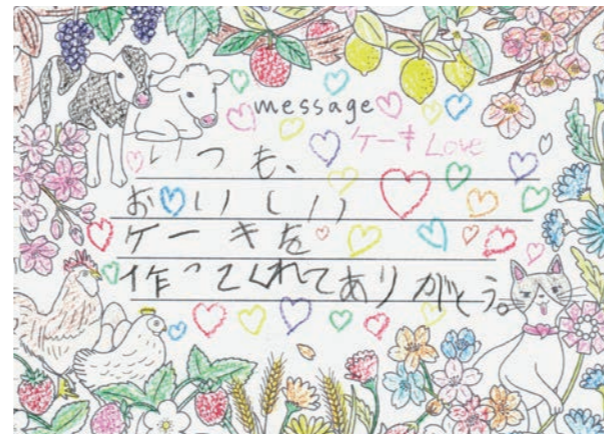 message
ケーキLove
いつも、
おいしい
ケーキを
作ってくれてありがとう。